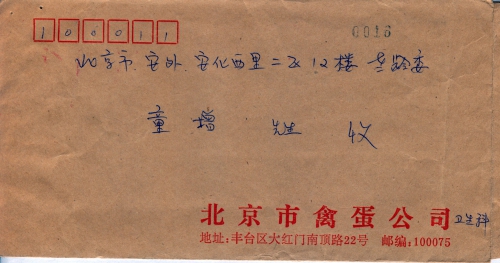 100011
0016
北京市.安外.安化西里二区12楼老龄委
童增 先生 收
北京市禽蛋公司 卫生科
地址:丰台区大红门南顶路22号 邮编:100075